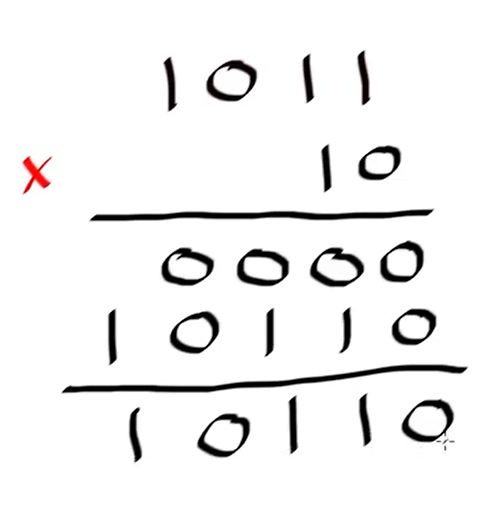 1011
x 10
0000
10110
10110